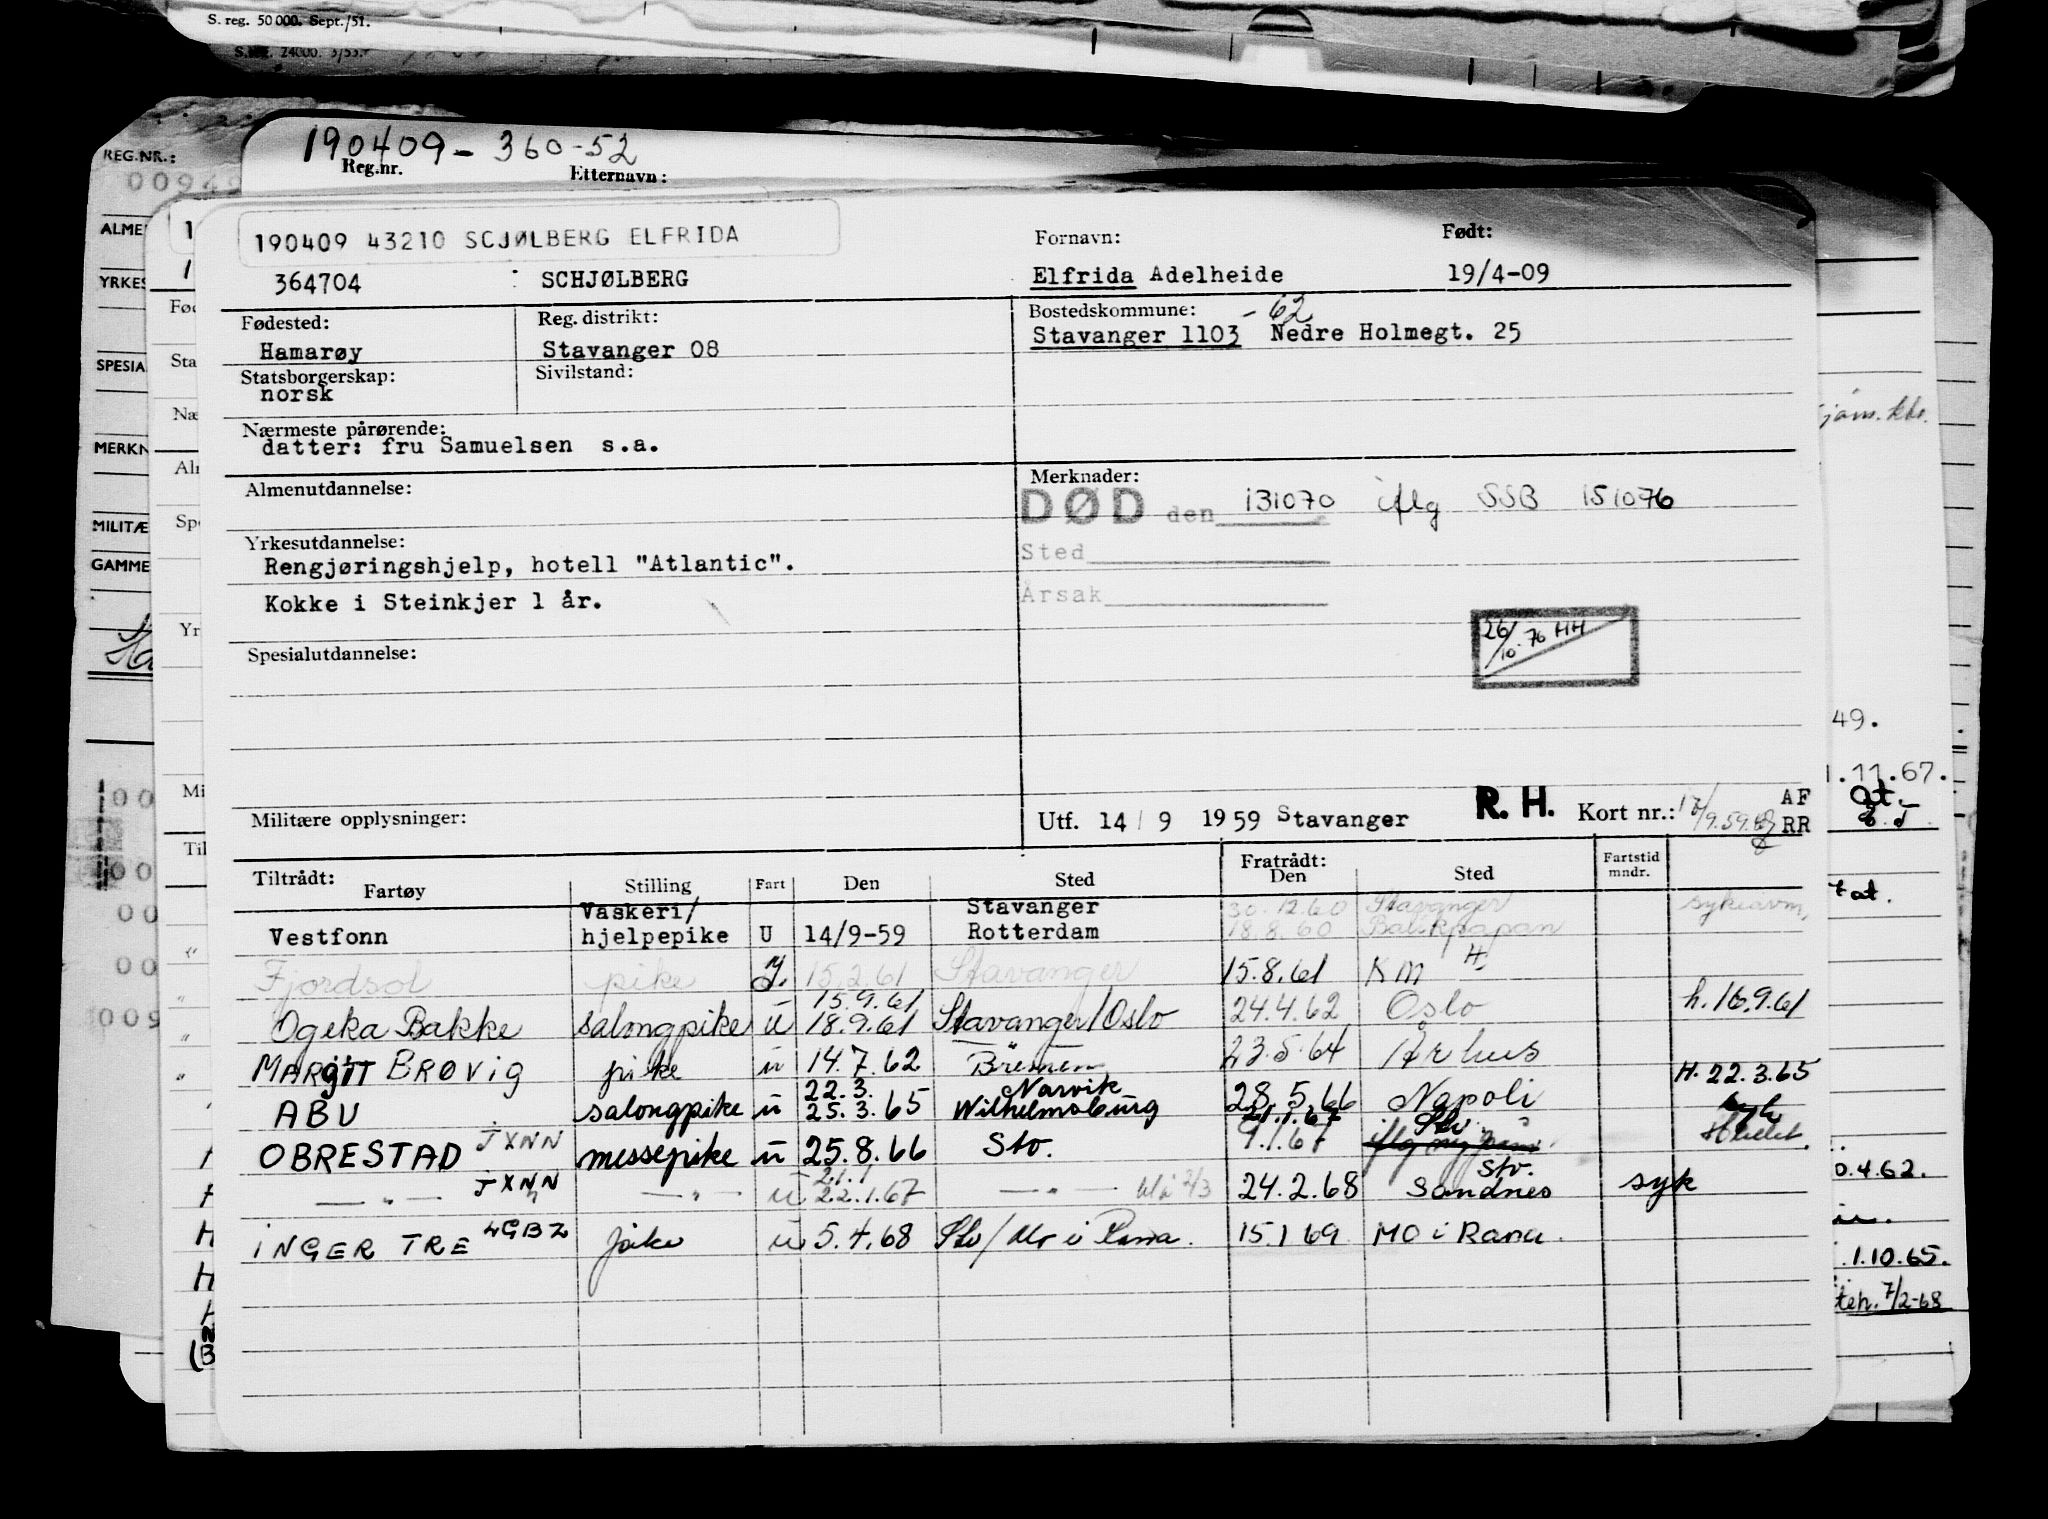 S. reg. 50 000. Sept./51.
S.NE. 24000. 3/53.
REG.NR.:
190409 - 360-52
Reg.nr. Etternavn:
190409 43210 SCJØLBERG ELFRIDA
Fornavn: Født:
364704 SCHJØLBERG Elfrida Adelheide 19/4-09
Fødested: Reg. distrikt: Bostedskommune: -62
Hamarøy Stavanger 08 Stavanger 1103 Nedre Holmegt. 25
Statsborgerskap: Sivilstand:
norsk
Nærmeste pårørende:
datter: fru Samuelsen s.a.
Almenutdannelse: Merknader:
DØD den 131070 iflg SSB 151076
Yrkesutdannelse: Sted
Rengjøringshjelp, hotell "Atlantic".
Kokke i Steinkjer 1 år. Årsak
26/10.76 HH
Spesialutdannelse:
Militære opplysninger: Utf. 14/9 1959 Stavanger R. H. Kort nr.: AF
RR
Tiltrådt: Fratrådt:
Fartøy Stilling Fart Den Sted Den Sted Fartstid mndr.
Vaskeri/ Stavanger 30.12.60 Stavanger sykeavm,
Vestfonn hjelpepike U 14/9-59 Rotterdam 18.8.60 Balikpapan
" Fjordsol pike 15.2.61 Stavanger 15.8.61 KM H.
15.9.61
" Ogeka Bakke salongpike u 18.9.61 Stavanger/Oslo 24.4.62 Oslo h.16.9.61
" MARGIT BRØVIG pike u 14.7.62 Bremen 23.5.64 Århus
22.3. Narvik H. 22.3.65
ABU salongpike u 25.3.65 Wilhelmsburg 28.5.66 Napoli
21.1.67 Stv
OBRESTAD JXNN messepike u 25.8.66 Stv. 9.1.67
21.1 Stv.
— " — JXNN — " — u 22.1.67 — " — 24.2.68 Sandnes syk
INGER TRE LGBZ pike u 5.4.68 Stv/Mo i Rana. 15.1.69 MO i Rana.
49.
1.11.67.
0.4.62.
1.10.65.
7/2-68